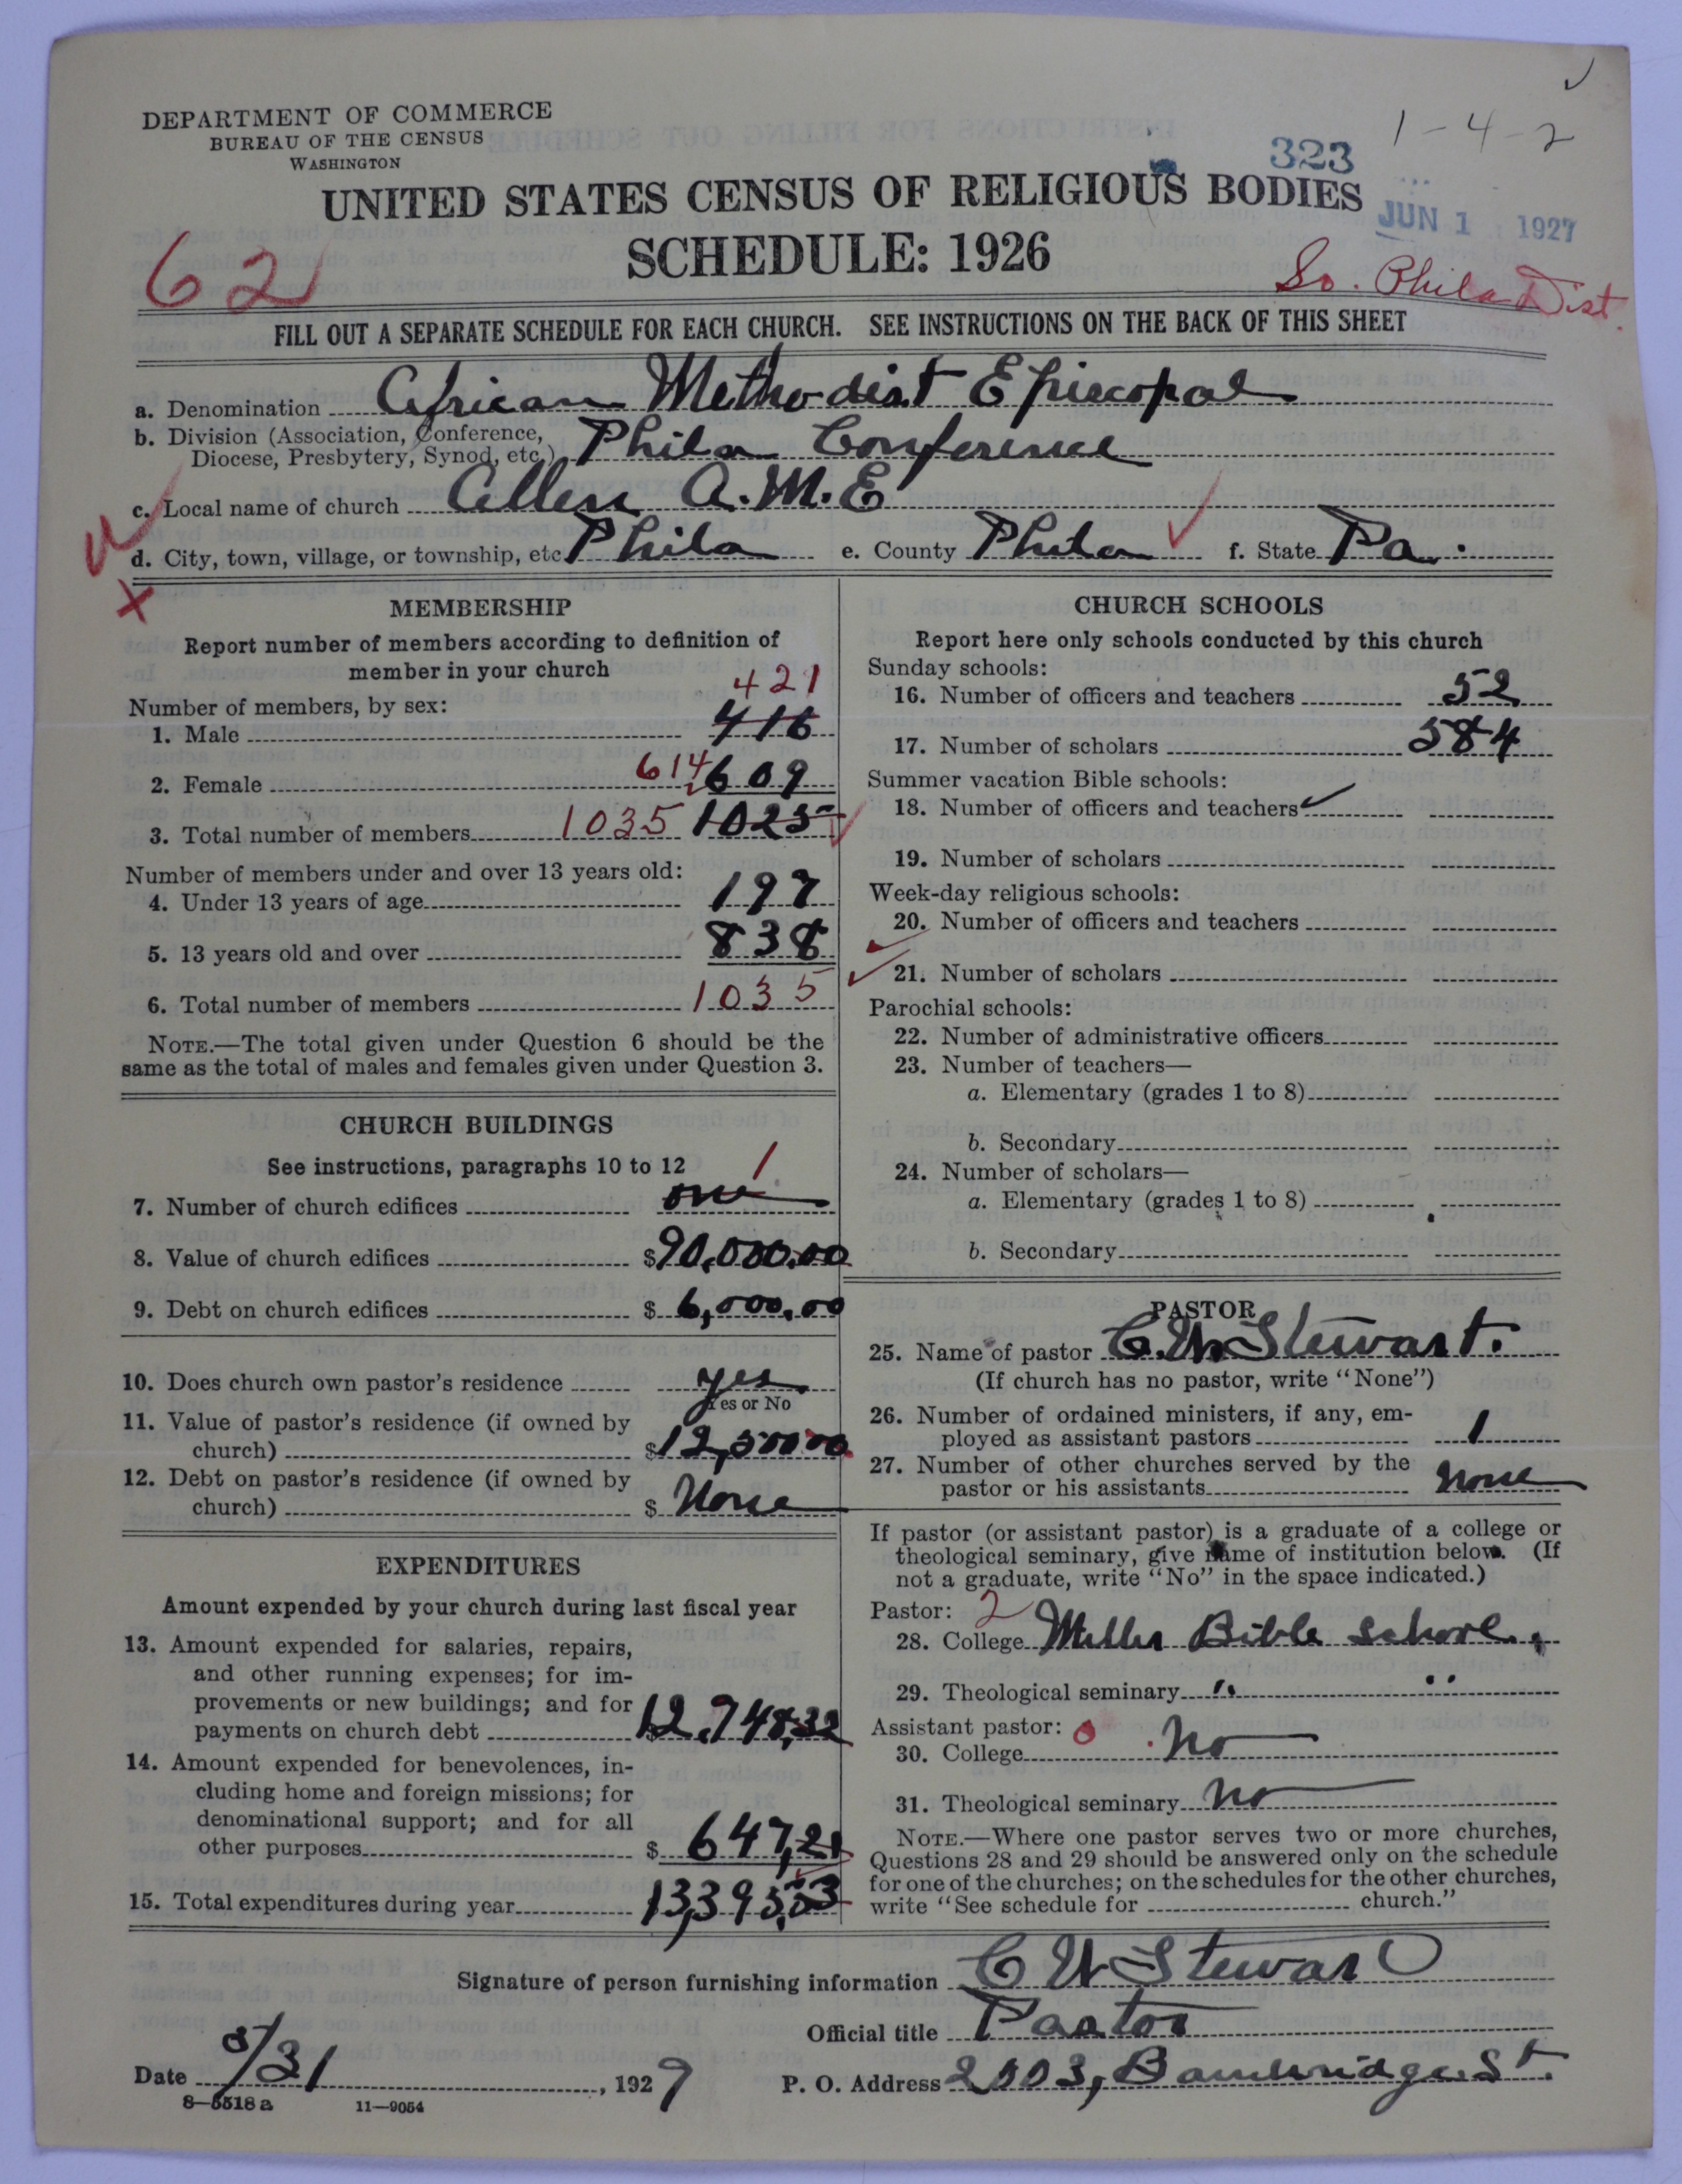 DEPARTMENT OF COMMERCE
BUREAU OF THE CENSUS
WASHINGTON
323
1-4-2
UNITED STATES CENSUS OF RELIGIOUS BODIES
JUN 1 1927
SCHEDULE: 1926
62
So. Phila Dist.
FILL OUT A SEPARATE SCHEDULE FOR EACH CHURCH. SEE INSTRUCTIONS ON THE BACK OF THIS SHEET
a. Denomination African Methodist Episcopal
b. Division (Association, Conference, Diocese, Presbytery, Synod, etc.) Phila Conference
c. Local name of church Allen A.M.E
d. City, town, village, or township, etc. Phila e. County Phila f. State Pa.
MEMBERSHIP
Report number of members according to definition of
member in your church
Number of members, by sex:
421
1. Male 416
2. Female 614 609
3. Total number of members 1035 1025
Number of members under and over 13 years old:
4. Under 13 years of age 197
5. 13 years old and over 838
6. Total number of members 1035
NOTE.—The total given under Question 6 should be the
same as the total of males and females given under Question 3.
CHURCH BUILDINGS
See instructions, paragraphs 10 to 12
1
7. Number of church edifices one
8. Value of church edifices $90,000.00
9. Debt on church edifices $ 6,000.00
10. Does church own pastor's residence yes
Yes or No
11. Value of pastor's residence (if owned by
church) $12,500.00
12. Debt on pastor's residence (if owned by
church) $ None
EXPENDITURES
Amount expended by your church during last fiscal year
13. Amount expended for salaries, repairs,
and other running expenses; for im-
provements or new buildings; and for
payments on church debt $12,748,32
14. Amount expended for benevolences, in-
cluding home and foreign missions; for
denominational support; and for all
other purposes $ 647,21
15. Total expenditures during year 13,395,53
CHURCH SCHOOLS
Report here only schools conducted by this church
Sunday schools:
16. Number of officers and teachers 52
17. Number of scholars 584
Summer vacation Bible schools:
18. Number of officers and teachers
19. Number of scholars
Week-day religious schools:
20. Number of officers and teachers
21. Number of scholars
Parochial schools:
22. Number of administrative officers
23. Number of teachers—
a. Elementary (grades 1 to 8)
b. Secondary
24. Number of scholars—
a. Elementary (grades 1 to 8)
b. Secondary
PASTOR
25. Name of pastor C.W. Stewart.
(If church has no pastor, write "None")
26. Number of ordained ministers, if any, em-
ployed as assistant pastors 1
27. Number of other churches served by the
pastor or his assistants none
If pastor (or assistant pastor) is a graduate of a college or
theological seminary, give name of institution below. (If
not a graduate, write "No" in the space indicated.)
Pastor: 2
28. College Miller Bible School
29. Theological seminary " "
Assistant pastor: 0
30. College No
31. Theological seminary No
NOTE.—Where one pastor serves two or more churches,
Questions 28 and 29 should be answered only on the schedule
for one of the churches; on the schedules for the other churches,
write "See schedule for church."
Signature of person furnishing information C W Stewart
Official title Pastor
Date 5/31, 1927 P. O. Address 2003, Bambridge St.
8—5518 a 11—9054